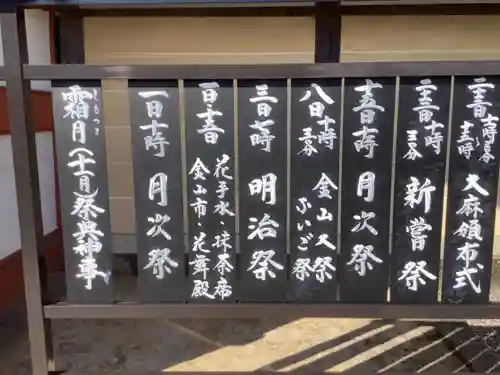 霜月(十一月)祭典神事
しもつき
一日十時 月次祭
花手水・抹茶席
金山市・花舞殿
三日七時 明治祭
八日十時
三十分
金山大祭
ふいご祭
十五日十時 月次祭
二十三日十時
三十分
新嘗祭
大麻頒布式